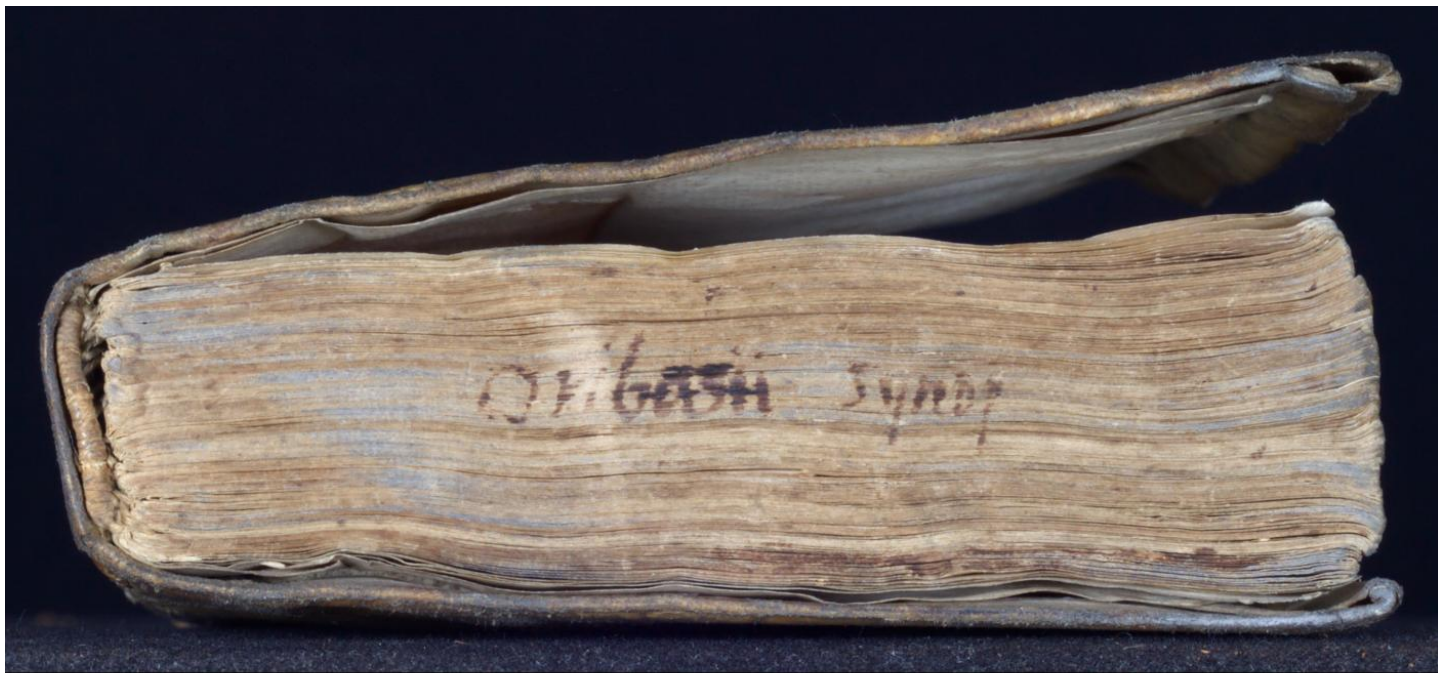 Oribasii Synop